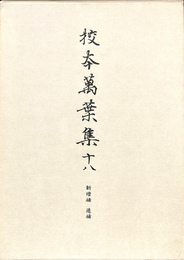 校本萬葉集十八
新增補 追補